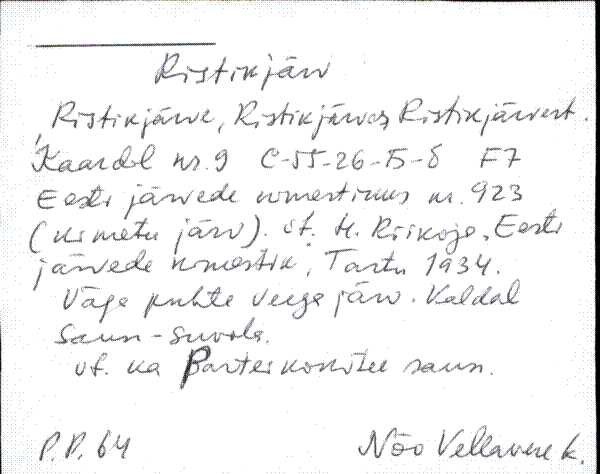 Ristikjärv
, Ristikjärve, Ristikjärves, Ristikjärvest.
Kaardil nr. 9 C-55-26-Б-б F7
Eesti järvede nimestikus nr. 923
(nimetu järv). vt. H. Riikoja, Eesti
järvede nimestik, Tartu 1934.
Väga puhta veega järv. Kaldal
saun-suvila.
vt. ka Parteikomitee saun.
P.P. 64 Nõo Vellavere k.